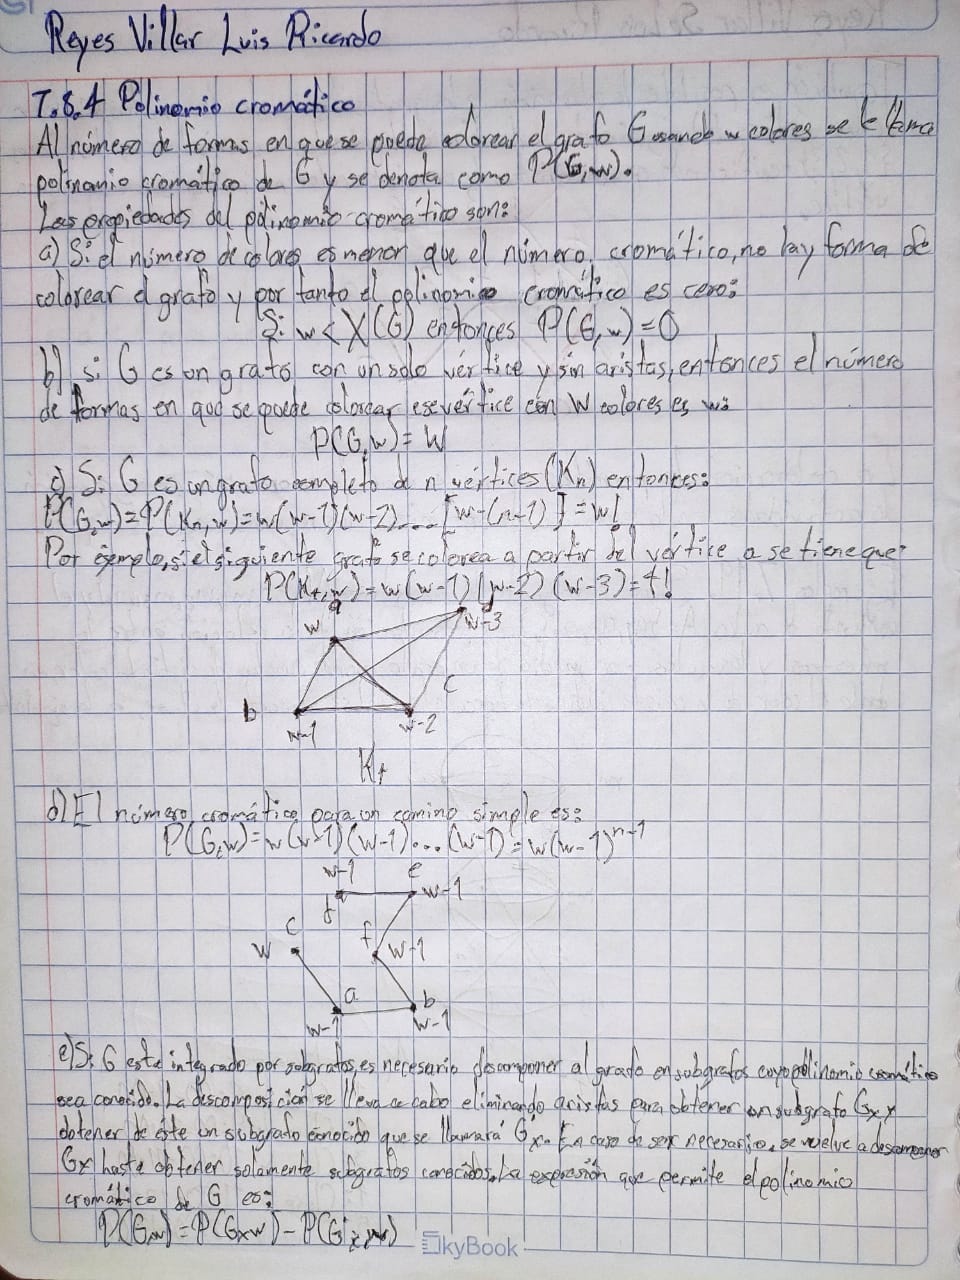 Reyes Villar Luis Ricardo
7.8.4 Polinomio cromático
Al número de formas en que se puede colorear el grafo G usando w colores se le llama
polinomio cromático de G y se denota como P(G,w).
Las propiedades del polinomio cromático son:
a) Si el número de colores es menor que el número cromático, no hay forma de
colorear el grafo y por tanto el polinomio cromático es cero:
Si w < X(G) entonces P(G,w)=0
b) si G es un grafo con un solo vértice y sin aristas, entonces el número
de formas en que se puede colorear ese vértice con W colores es w:
P(G,w)=W
c) Si G es un grafo completo de n vértices (Kn) entonces:
P(G,w)=P(Kn,w)=w(w-1)(w-2)....[w-(n-1)]=w!
Por ejemplo, si el siguiente grafo se colorea a partir del vértice a se tiene que:
P(K4,w)=w(w-1)(w-2)(w-3)=4!
a
w
w-3
c
b
w-1
w-2
K4
d) El número cromático para un camino simple es:
P(G,w)=w(w-1)(w-1)...(w-1)=w(w-1)^n-1
w-1
e
w-1
d
c
w
f
w-1
a
b
w-1
w-1
e) Si G este integrado por subgrafos, es necesario descomponer al grafo en subgrafos cuyo polinomio cromático
sea conocido. La descomposición se lleva a cabo eliminando aristas para obtener un subgrafo Gx y
obtener de éste un subgrafo conocido que se llamará G'x. En caso de ser necesario, se vuelve a descomponer
Gx hasta obtener solamente subgrafos conocidos. La expresión que permite el polinomio
cromático de G es:
P(G,w)=P(Gx,w)-P(G'x,w)
SkyBook